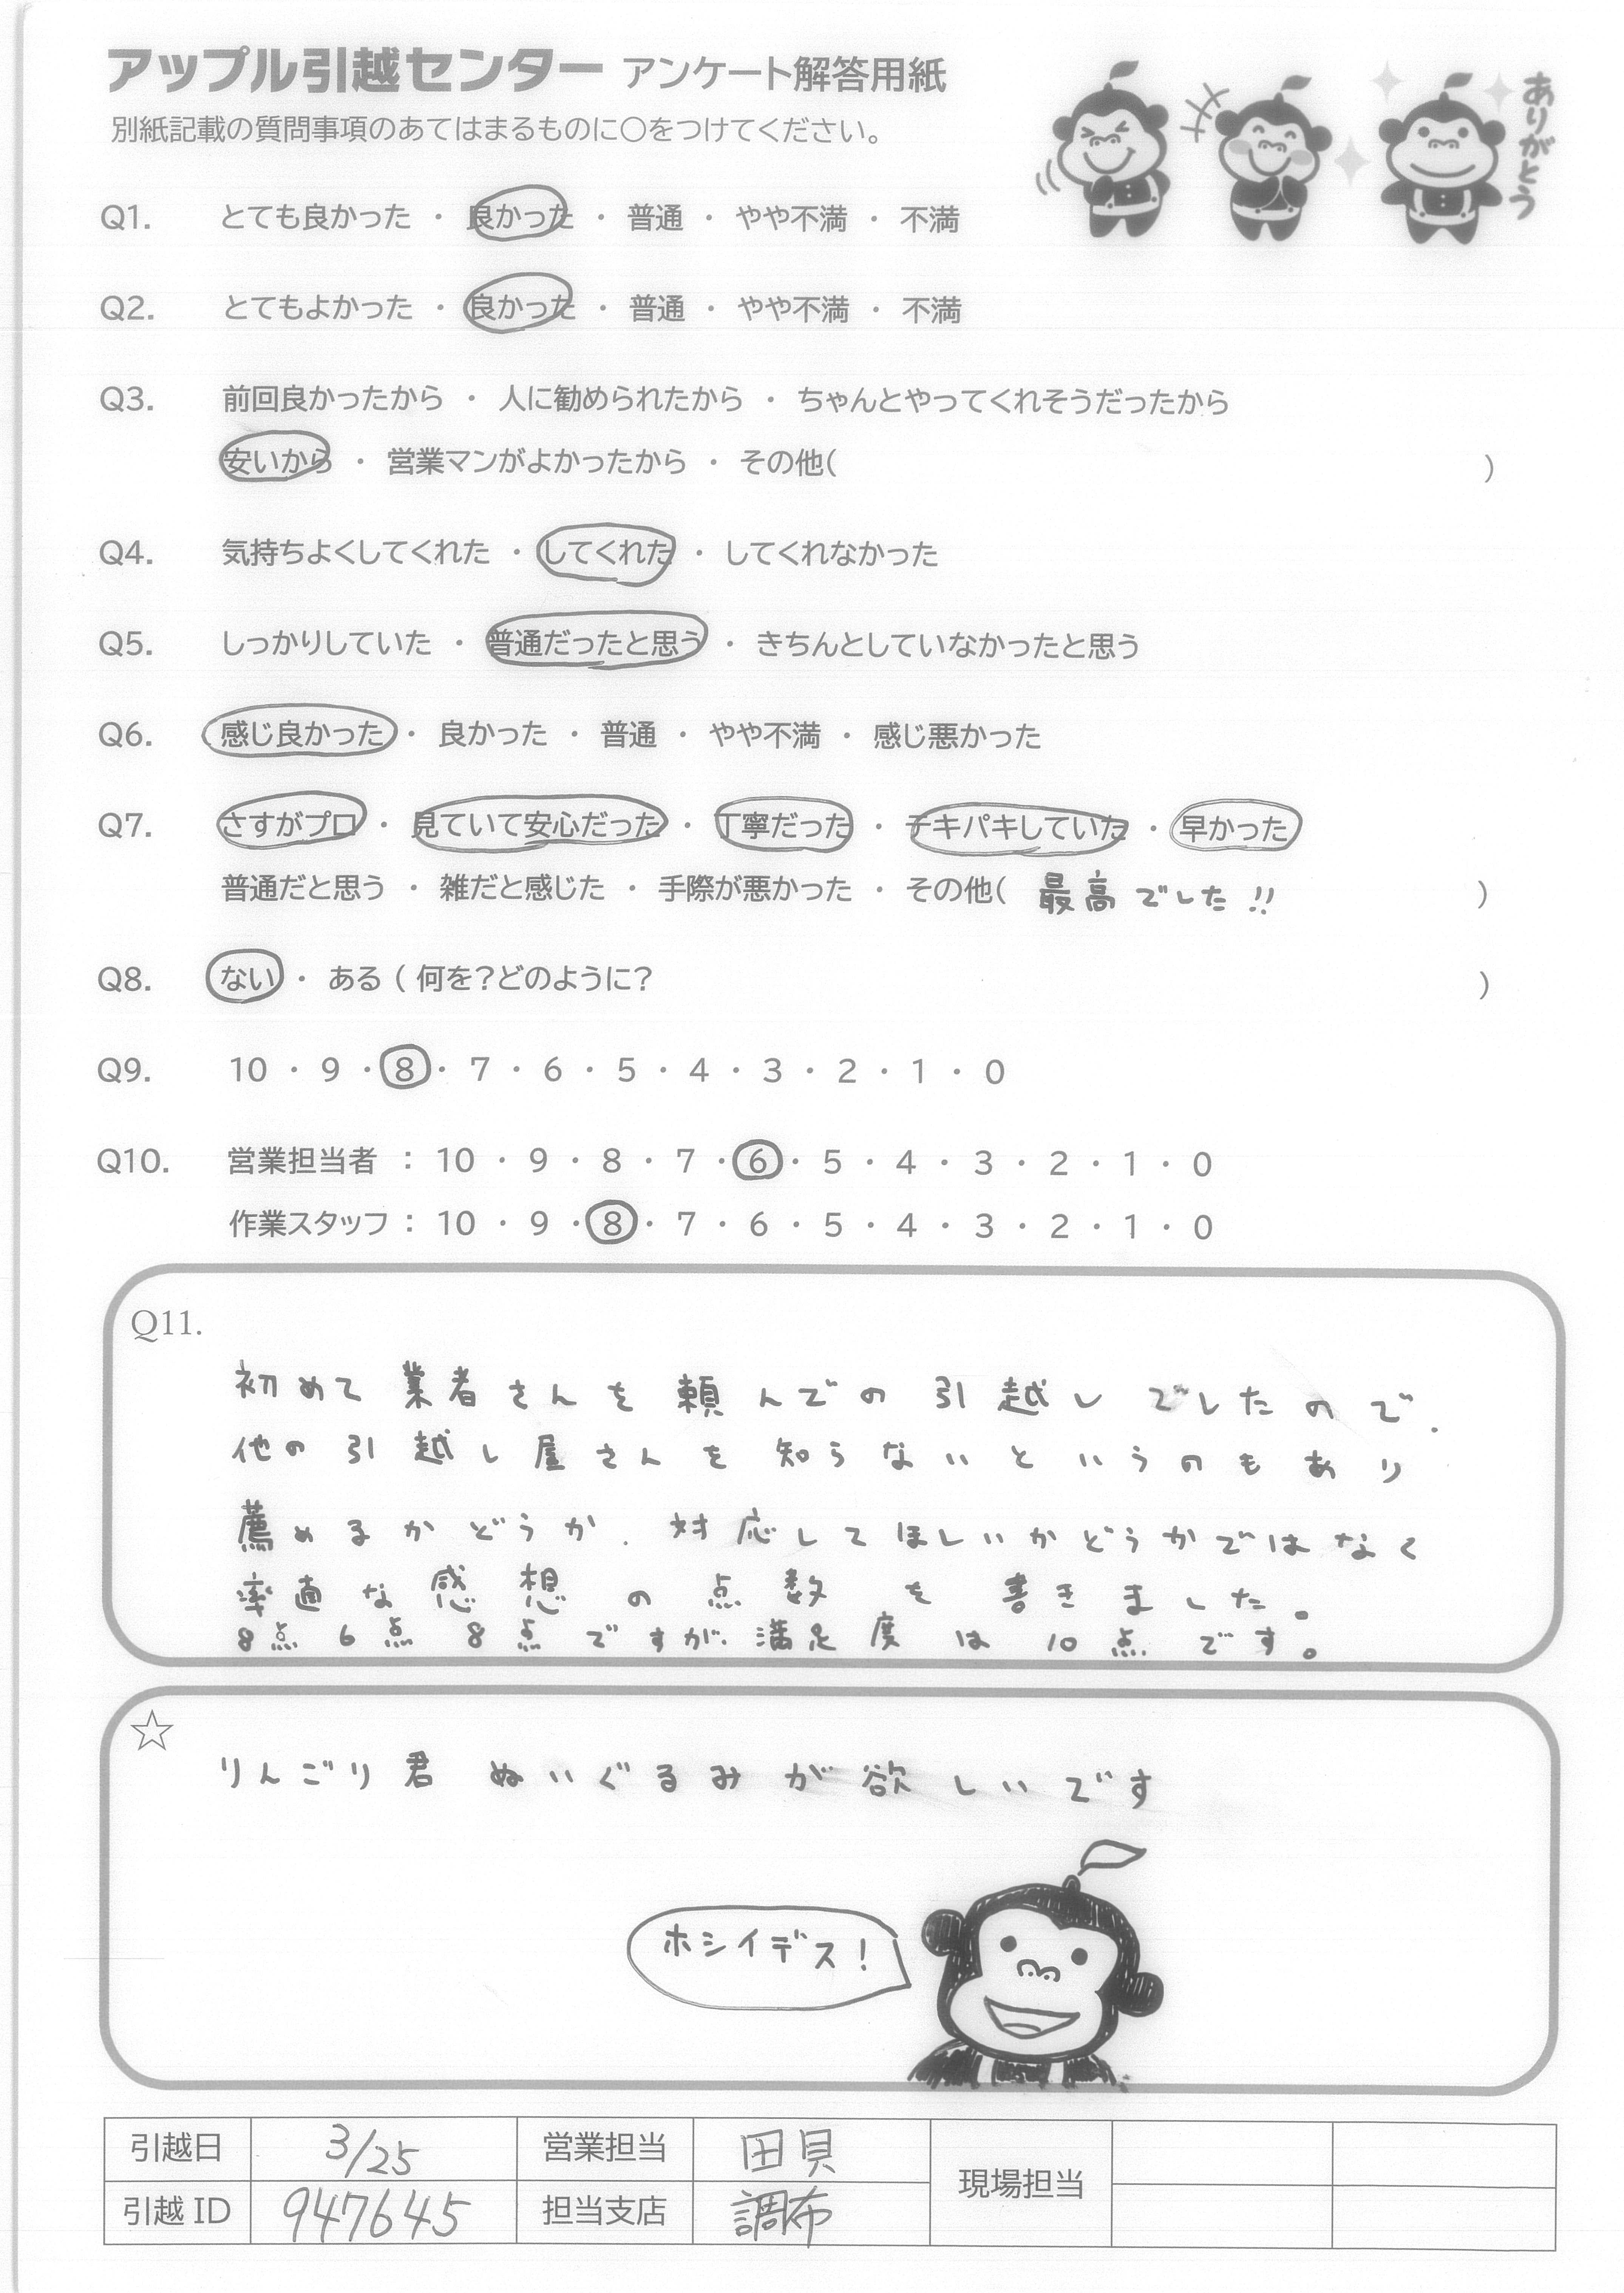 アップル引越センター アンケート解答用紙
別紙記載の質問事項のあてはまるものに○をつけてください。
ありがとう
Q1. とても良かった ・ 良かった ・ 普通 ・ やや不満 ・ 不満
Q2. とてもよかった ・ 良かった ・ 普通 ・ やや不満 ・ 不満
Q3. 前回良かったから ・ 人に勧められたから ・ ちゃんとやってくれそうだったから
安いから ・ 営業マンがよかったから ・ その他( )
Q4. 気持ちよくしてくれた ・ してくれた ・ してくれなかった
Q5. しっかりしていた ・ 普通だったと思う ・ きちんとしていなかったと思う
Q6. 感じ良かった ・ 良かった ・ 普通 ・ やや不満 ・ 感じ悪かった
Q7. さすがプロ ・ 見ていて安心だった ・ 丁寧だった ・ テキパキしていた ・ 早かった
普通だと思う ・ 雑だと感じた ・ 手際が悪かった ・ その他( 最高でした!! )
Q8. ない ・ ある ( 何を?どのように? )
Q9. 10 ・ 9 ・ 8 ・ 7 ・ 6 ・ 5 ・ 4 ・ 3 ・ 2 ・ 1 ・ 0
Q10. 営業担当者 : 10 ・ 9 ・ 8 ・ 7 ・ 6 ・ 5 ・ 4 ・ 3 ・ 2 ・ 1 ・ 0
作業スタッフ : 10 ・ 9 ・ 8 ・ 7 ・ 6 ・ 5 ・ 4 ・ 3 ・ 2 ・ 1 ・ 0
Q11.
初めて業者さんを頼んでの引越しでしたので、
他の引越し屋さんを知らないというのもあり
薦めるかどうか、対応してほしいかどうかではなく
率直な感想の点数を書きました。
8点6点8点ですが、満足度は10点です。
☆
りんごり君ぬいぐるみが欲しいです
ホシイデス!
引越日 3/25 営業担当 田貝 現場担当
引越ID 947645 担当支店 調布